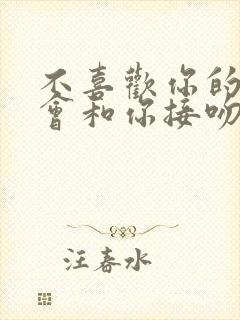 不喜歡你的
會和你接吻
汪春水